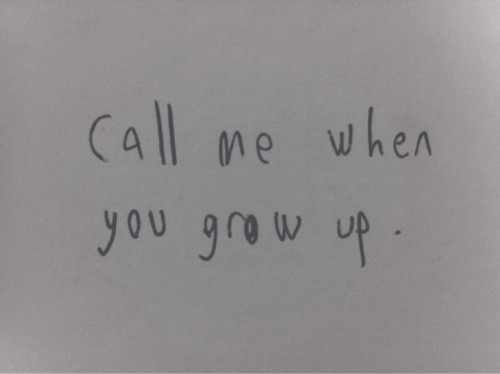 Call me when
you grow up.